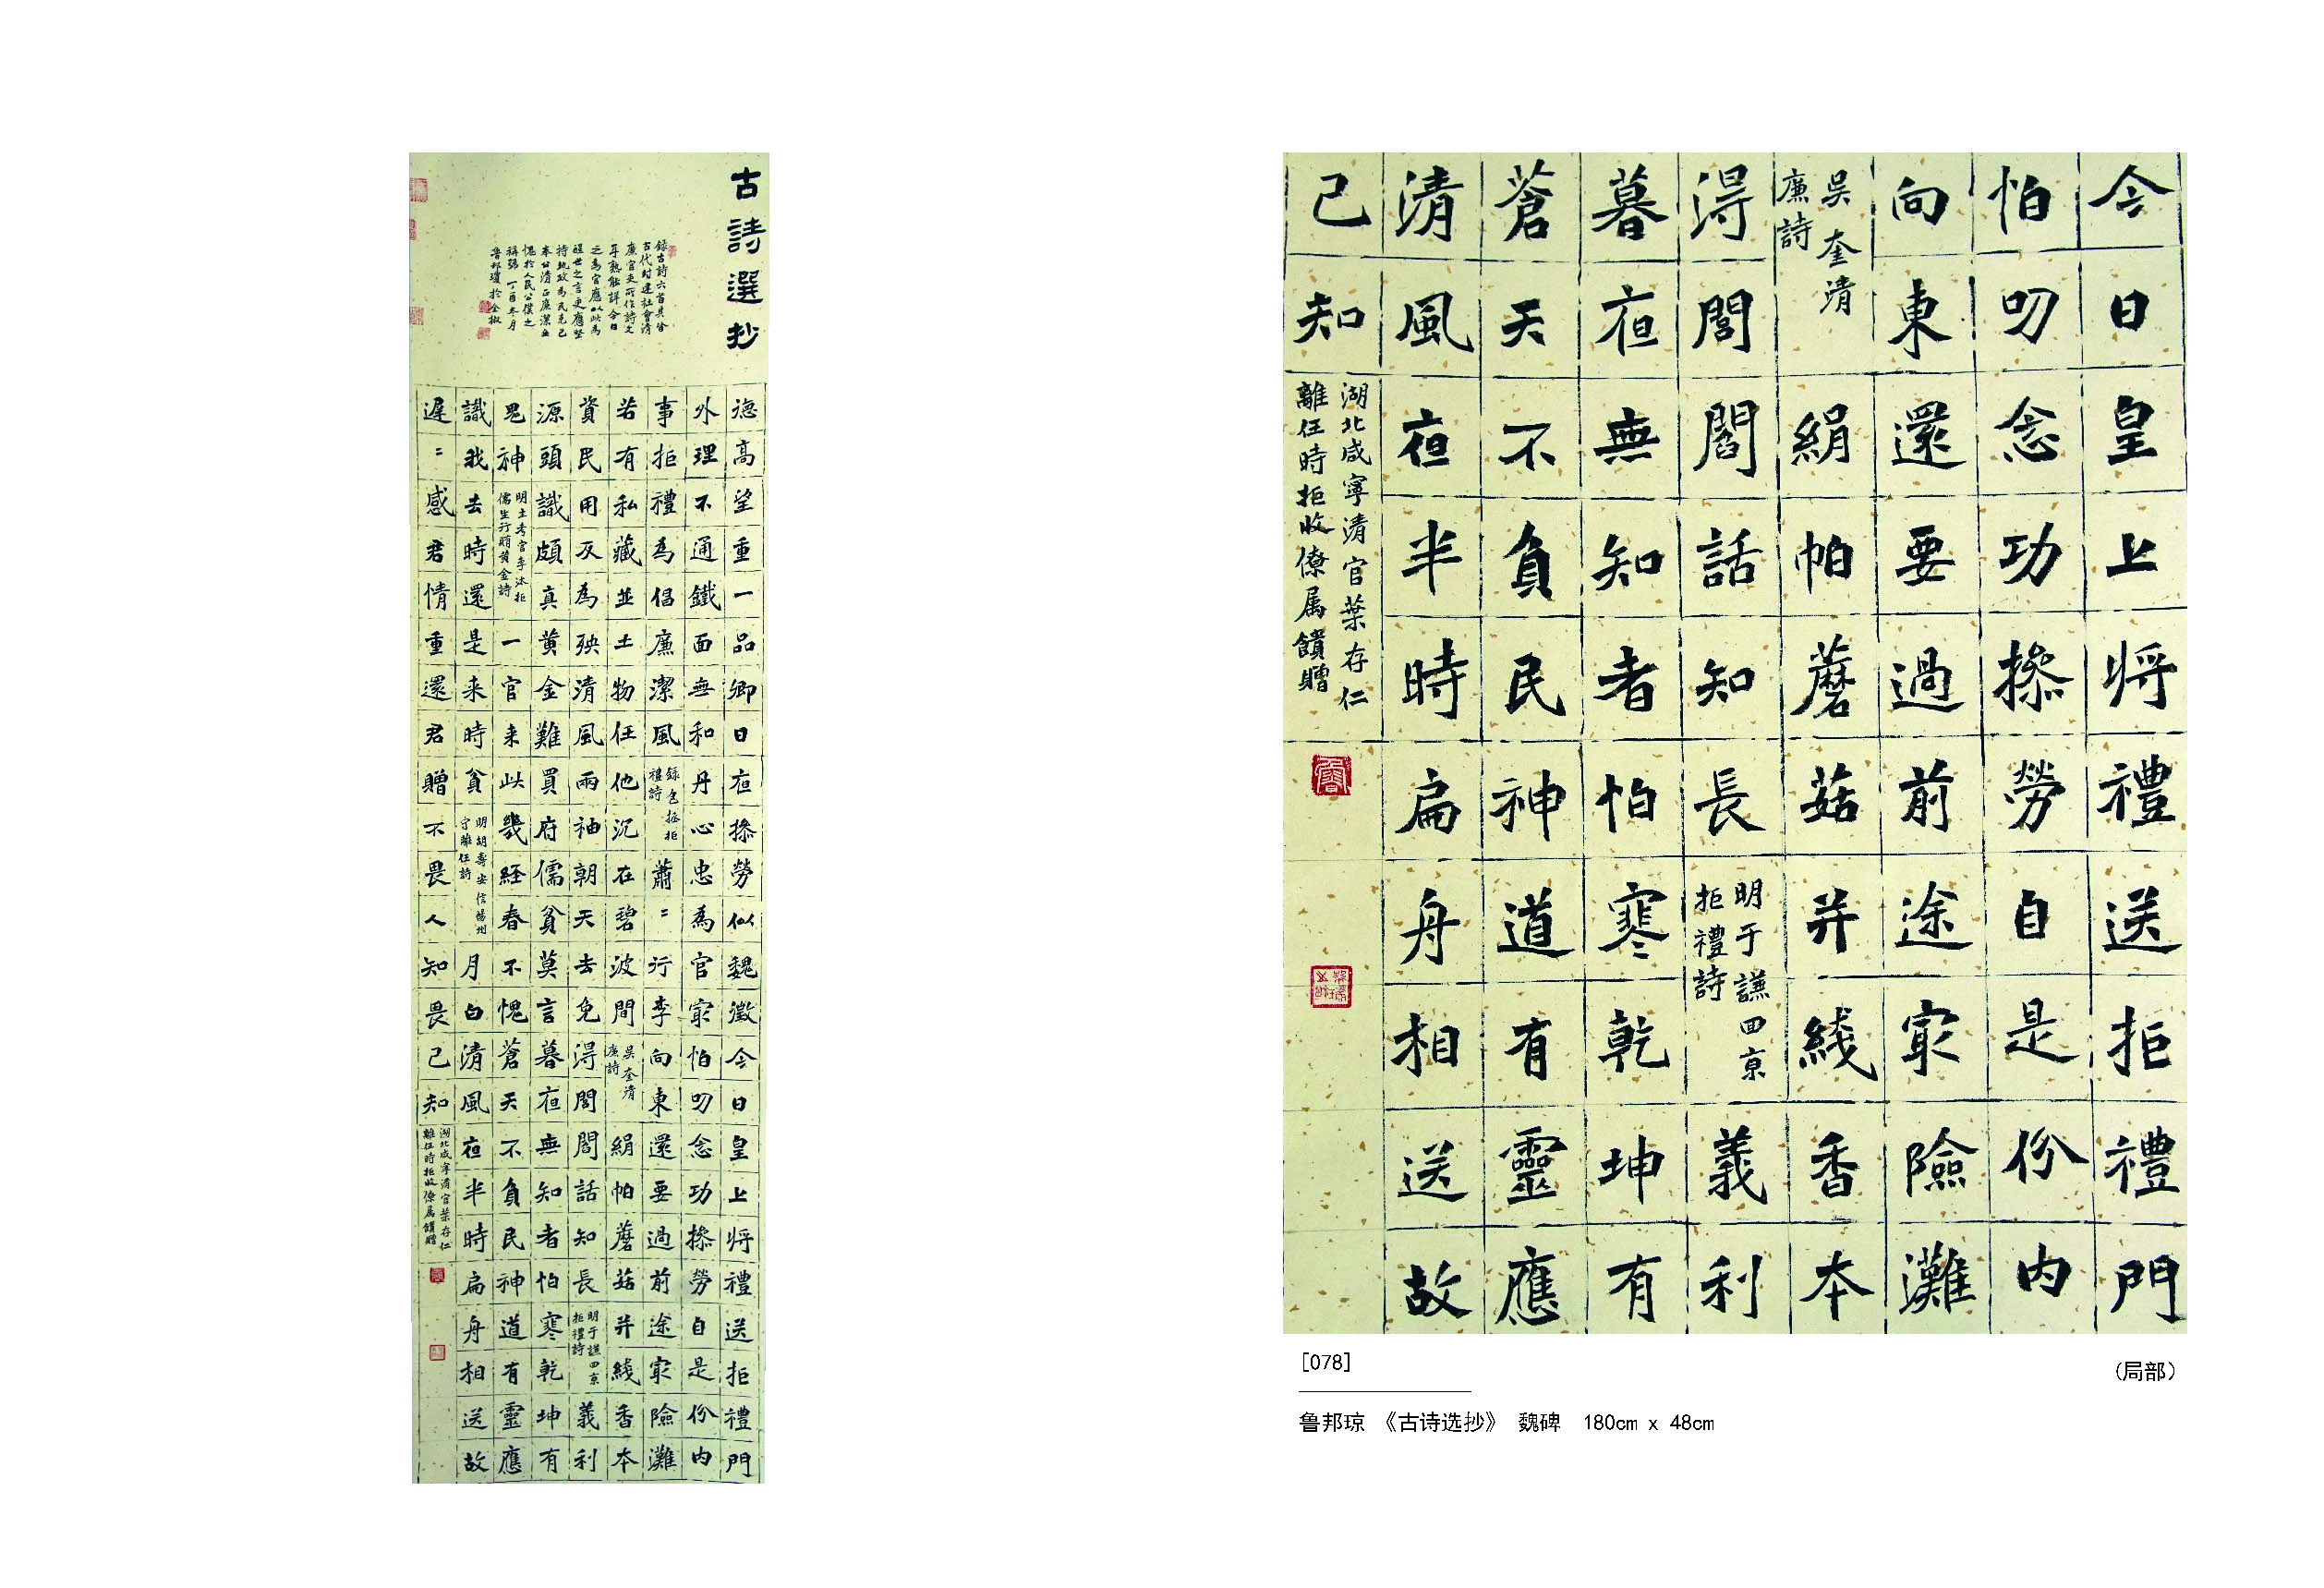 古詩選抄
錄古詩六首其皆
古代封建社會清
廉官吏所作詩文
耳熟能詳今日
之為官應以此為
醒世之言更應堅
持執政為民克己
奉公清正廉潔無
愧於人民公僕之
稱號 丁酉冬月
魯邦瓊於金椒
德高望重一品卿日夜操勞似魏徵今日皇上將禮送拒禮門
外理不通鐵面無和丹心忠為官最怕叨念功操勞自是份内
事拒禮為倡廉潔風 錄包拯拒禮詩 蕭〻行李向東還要過前途最險灘
若有私藏並土物任他沉在碧波間 吳奎清廉詩 絹帕蘑菇并綫香本
資民用反為殃清風兩袖朝天去免得閭閻話知長 明于謙四京拒禮詩 義利
源頭識頗真黃金難買府儒貧莫言暮夜無知者怕寒乾坤有
鬼神 明主考官李汰拒儒生行賄黃金詩 一官来此幾經春不愧蒼天不負民神道有靈應
識我去時還是来時貧 明胡壽安信陽州守離任詩 月白清風夜半時扁舟相送故
遲〻感君情重還君贈不畏人知畏己知 湖北咸寧清官葉存仁離任時拒收僚属饋贈
今日皇上將禮送拒禮門
怕叨念功操勞自是份内
向東還要過前途最險灘
吳奎清廉詩 絹帕蘑菇并綫香本
得閭閻話知長 明于謙四京拒禮詩 義利
暮夜無知者怕寒乾坤有
蒼天不負民神道有靈應
清風夜半時扁舟相送故
己知 湖北咸寧清官葉存仁離任時拒收僚属饋贈
[078]
(局部)
鲁邦琼 《古诗选抄》 魏碑 180cm x 48cm